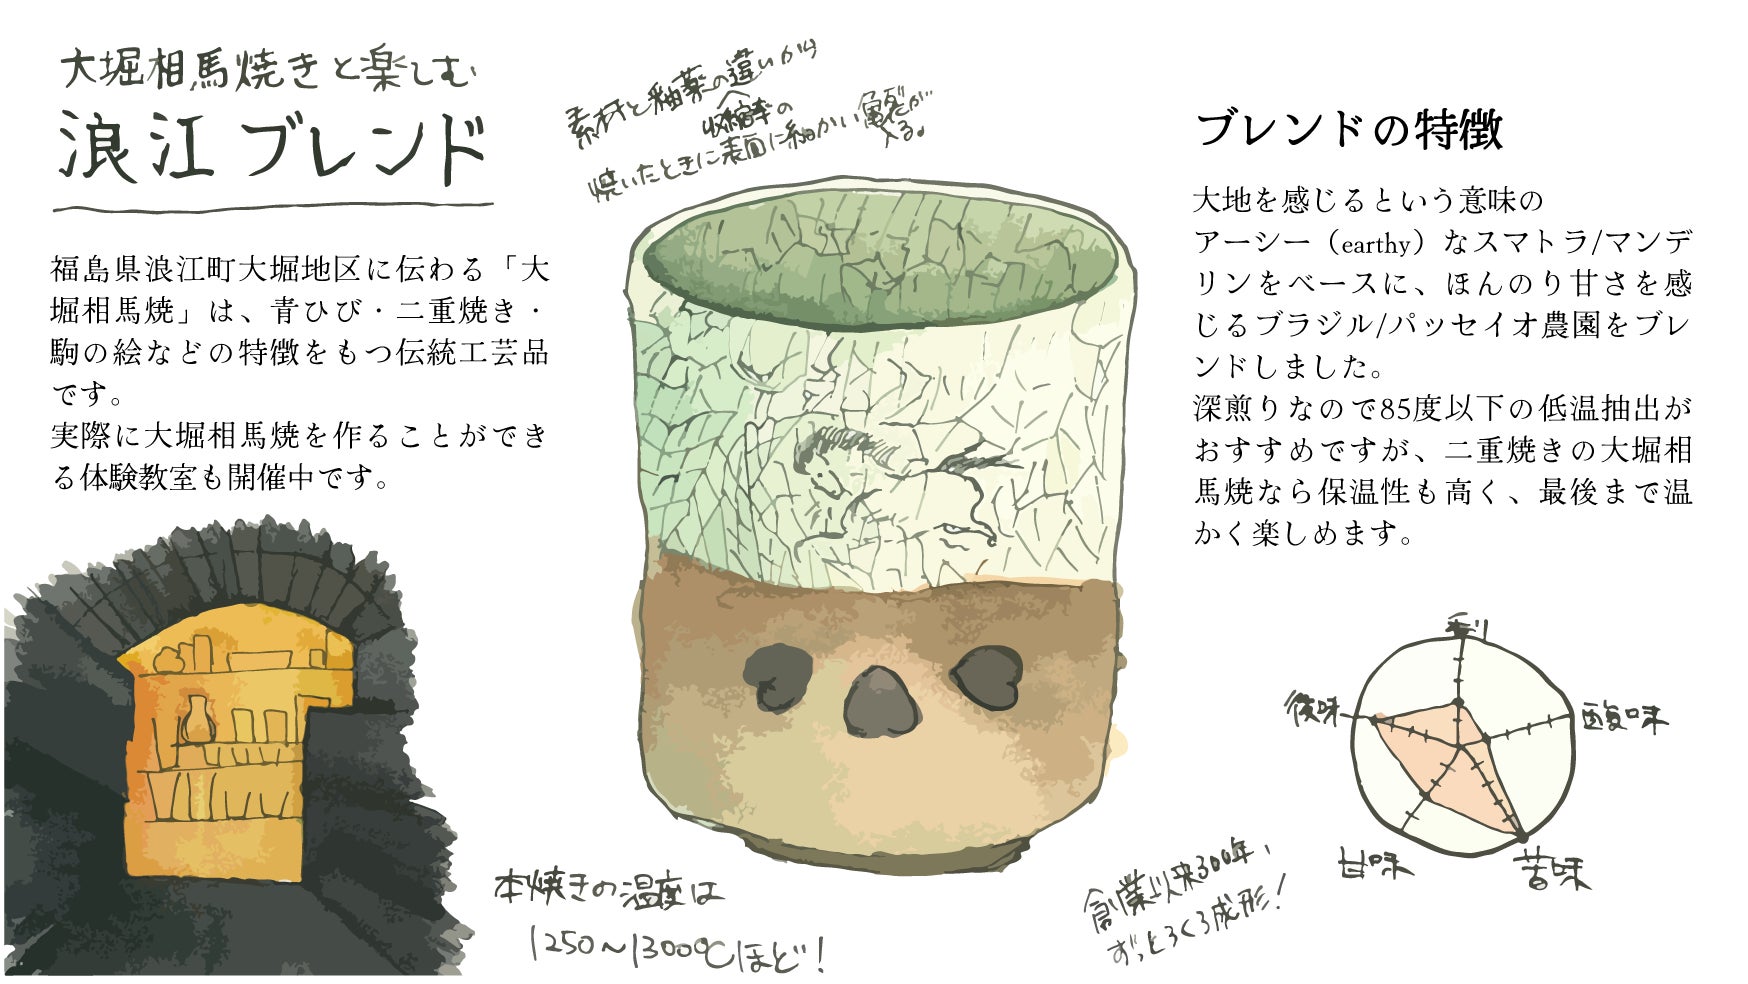 大堀相馬焼きと楽しむ
浪江ブレンド
福島県浪江町大堀地区に伝わる「大
堀相馬焼」は、青ひび・二重焼き・
駒の絵などの特徴をもつ伝統工芸品
です。
実際に大堀相馬焼を作ることができ
る体験教室も開催中です。
素材と釉薬の違いから
収縮率の
焼いたときに表面に細かい亀裂が
入る。
本焼きの温度は
1250〜1300℃ほど!
創業以来300年、
ずっとろくろ成形!
ブレンドの特徴
大地を感じるという意味の
アーシー（earthy）なスマトラ/マンデ
リンをベースに、ほんのり甘さを感
じるブラジル/パッセイオ農園をブレ
ンドしました。
深煎りなので85度以下の低温抽出が
おすすめですが、二重焼きの大堀相
馬焼なら保温性も高く、最後まで温
かく楽しめます。
香り
後味
酸味
甘味
苦味